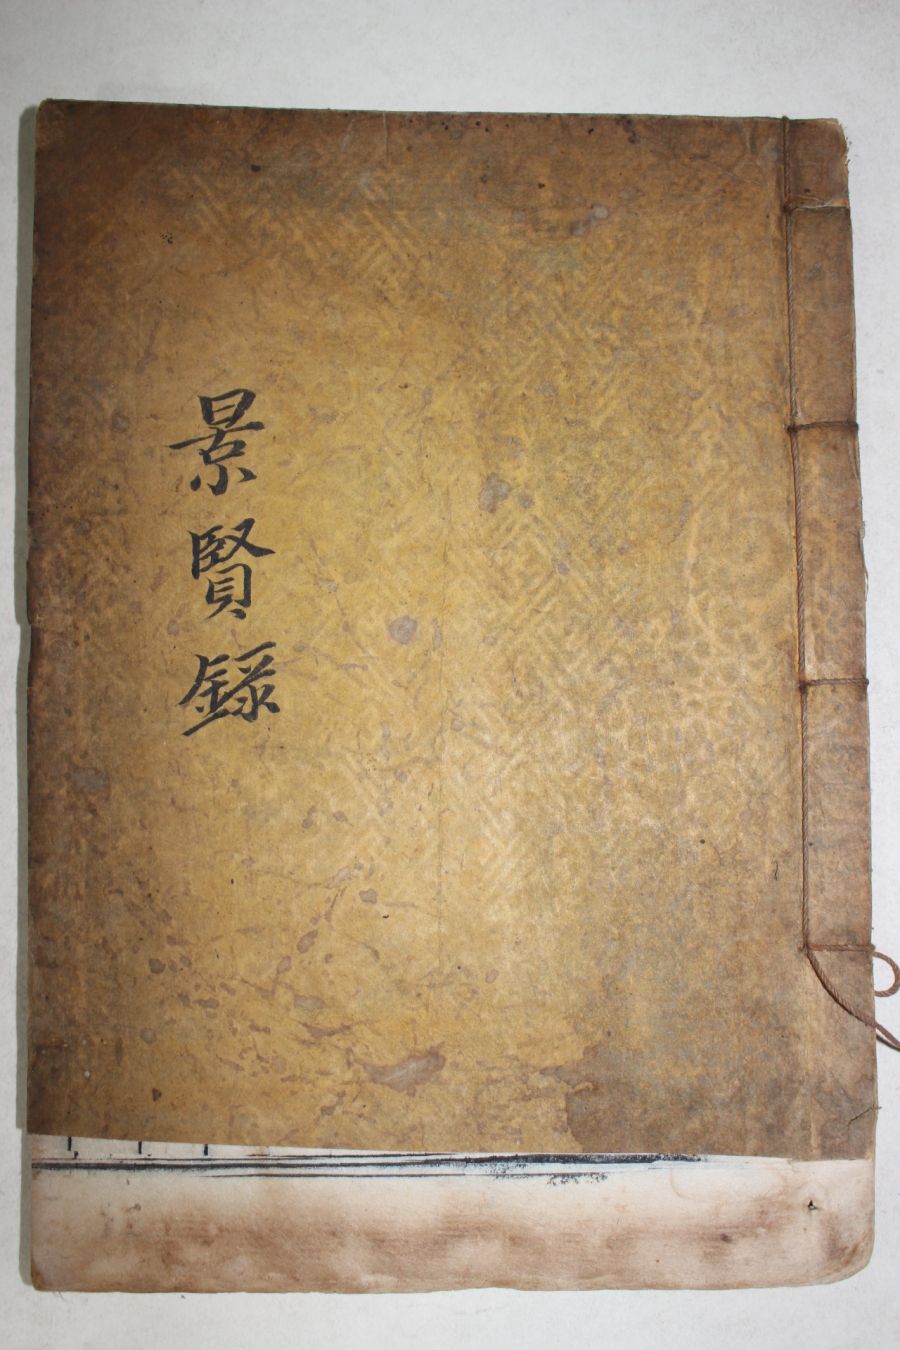 景賢錄